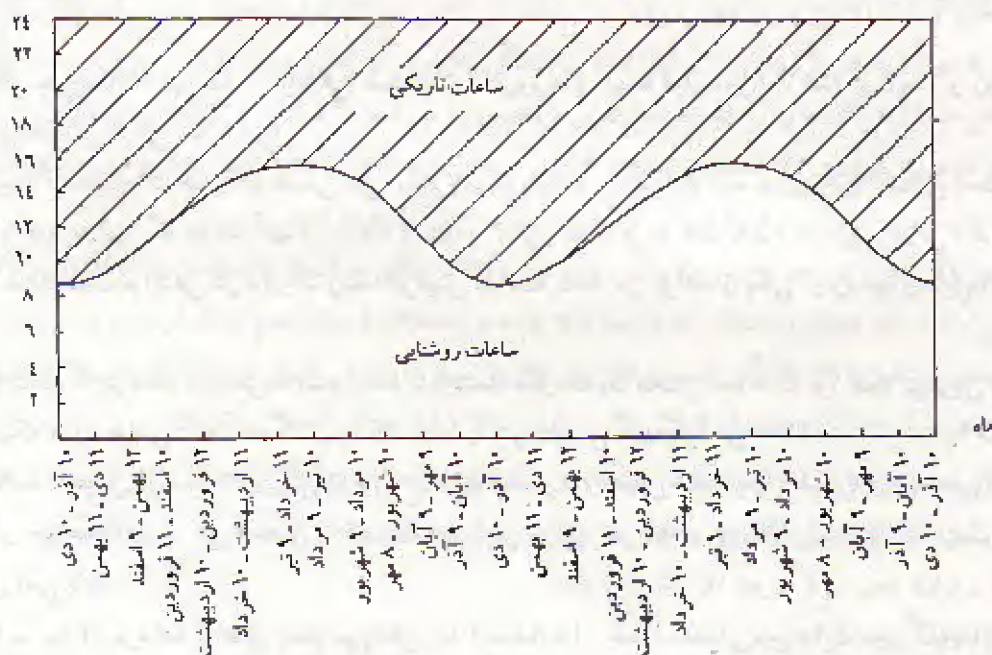 ۲۴
۲۲
۲۰
۱۸
۱۶
۱۴
۱۲
۱۰
۸
۶
۴
۲
ساعات تاریکی
ساعات روشنایی
ماه
۱۰ آذر - ۱۰ دی
۱۱ دی - ۱۱ بهمن
۱۲ بهمن - ۹ اسفند
۱۰ اسفند - ۱۱ فروردین
۱۲ فروردین - ۱۰ اردیبهشت
۱۱ اردیبهشت - ۱۰ خرداد
۱۱ خرداد - ۹ تیر
۱۰ تیر - ۹ مرداد
۱۰ مرداد - ۹ شهریور
۱۰ شهریور - ۸ مهر
۹ مهر - ۹ آبان
۱۰ آبان - ۹ آذر
۱۰ آذر - ۱۰ دی
۱۱ دی - ۱۱ بهمن
۱۲ بهمن - ۹ اسفند
۱۰ اسفند - ۱۱ فروردین
۱۲ فروردین - ۱۰ اردیبهشت
۱۱ اردیبهشت - ۱۰ خرداد
۱۱ خرداد - ۹ تیر
۱۰ تیر - ۹ مرداد
۱۰ مرداد - ۹ شهریور
۱۰ شهریور - ۸ مهر
۹ مهر - ۹ آبان
۱۰ آبان - ۹ آذر
۱۰ آذر - ۱۰ دی